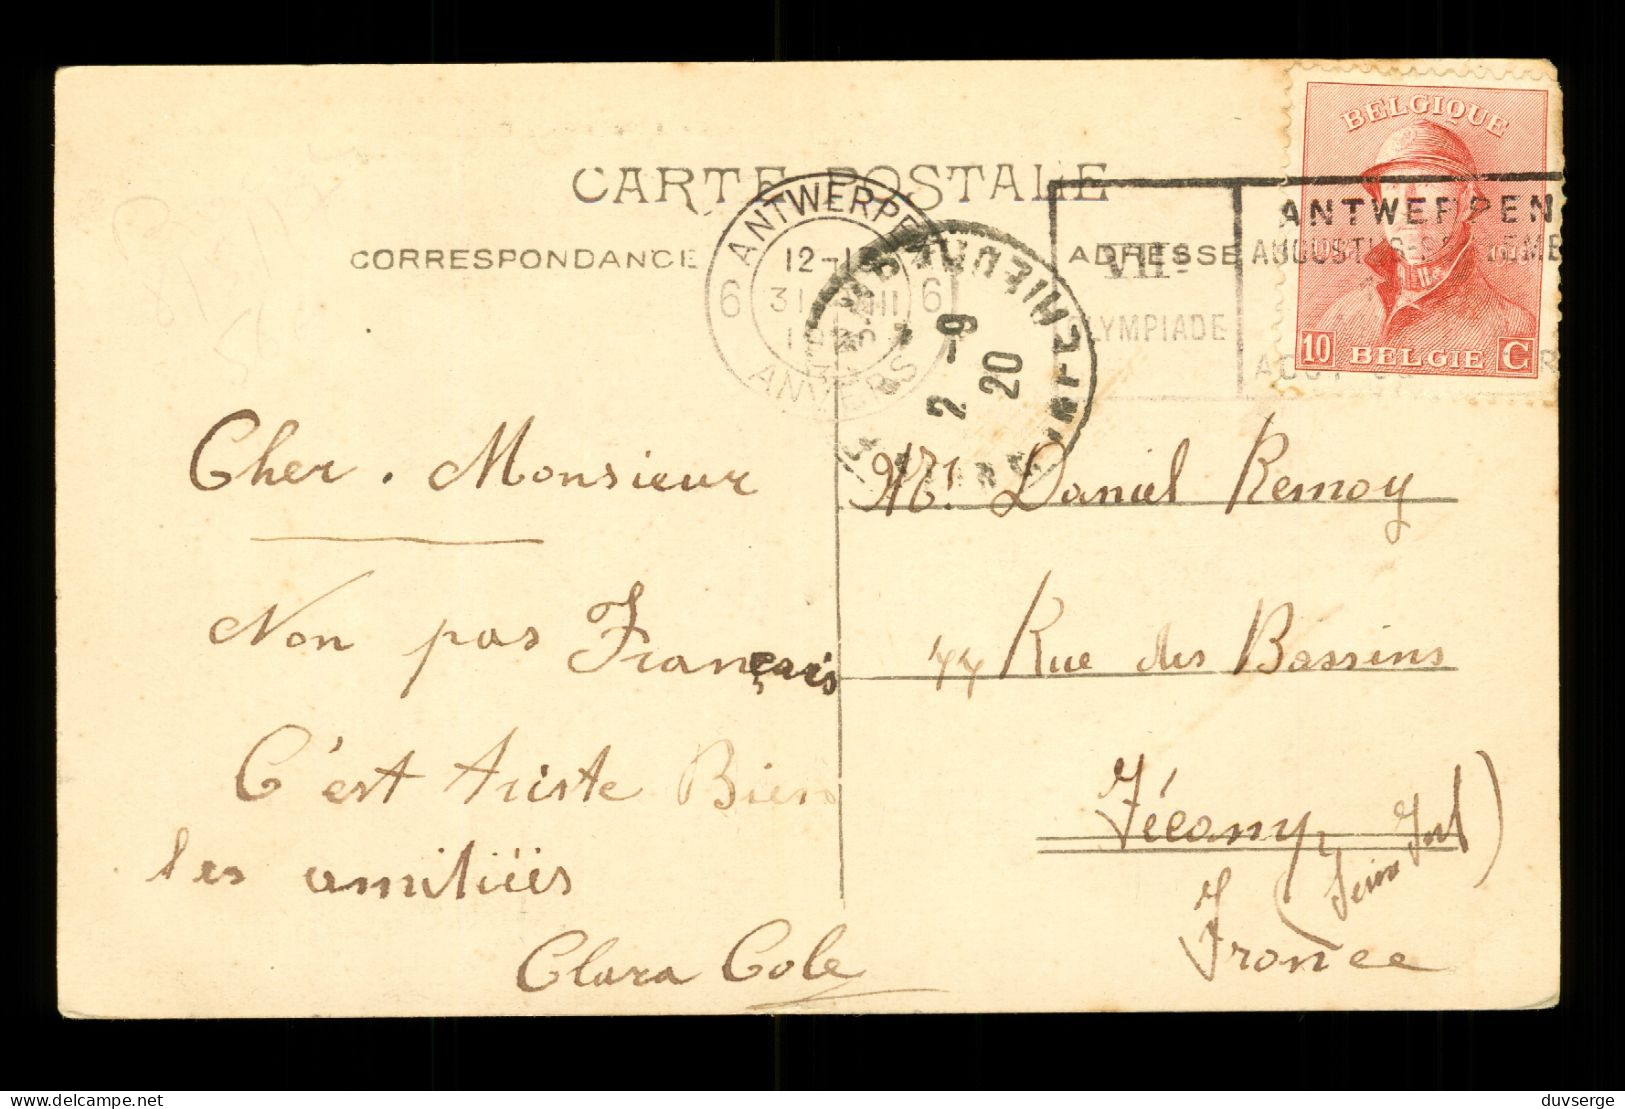 CARTE POSTALE
CORRESPONDANCE
ADRESSE
ANTWERPEN
12-1
31 VIII
6 6
ANVERS
2 -9
20
VIIE
OLYMPIADE
ANTWERPEN
AUGUSTUS-SEPTEMB
BELGIQUE
10 BELGIE C
Cher. Monsieur
Non pas Français
C'est triste Bien
les amitiiés
Clara Cole
Mr. Daniel Remoy
44 Rue des Bassins
Fécamp
(Seine Inf)
France
duvserge